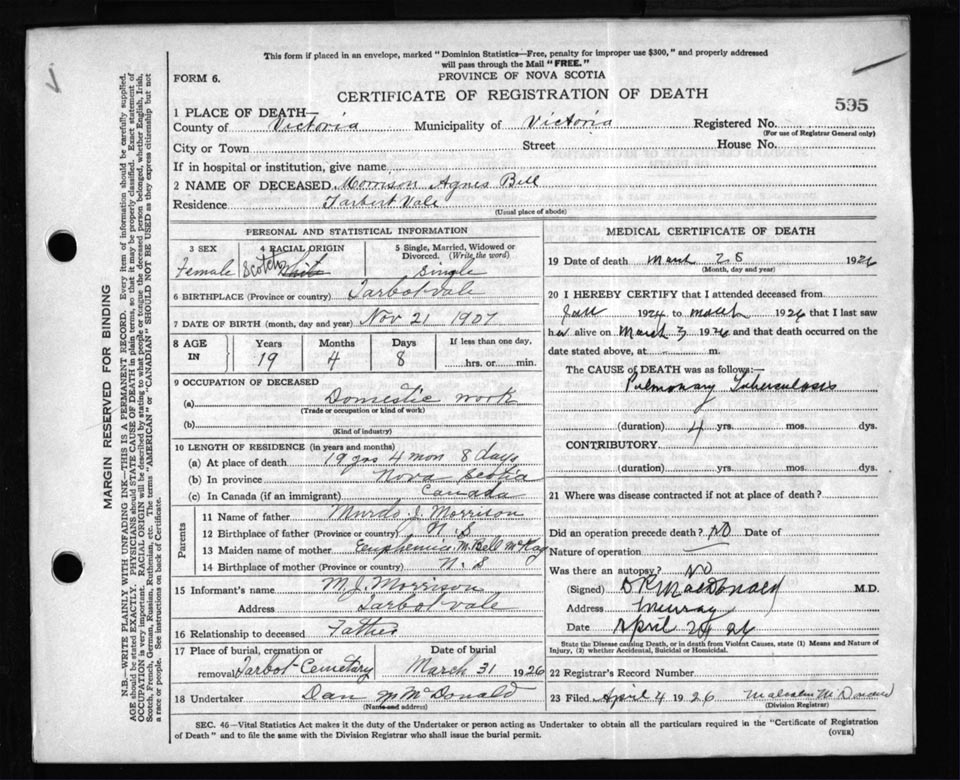 This form if placed in an envelope, marked "Dominion Statistics—Free, penalty for improper use $300," and properly addressed
will pass through the Mail "FREE."
FORM 6.
PROVINCE OF NOVA SCOTIA
CERTIFICATE OF REGISTRATION OF DEATH
595
1 PLACE OF DEATH—
County of Victoria Municipality of Victoria Registered No.
(For use of Registrar General only)
City or Town Street House No.
If in hospital or institution, give name
2 NAME OF DECEASED Morrison Agnes Bell
Residence Tarbert Vale
(Usual place of abode)
PERSONAL AND STATISTICAL INFORMATION
3 SEX 4 RACIAL ORIGIN 5 Single, Married, Widowed or
Divorced. (Write the word)
Female Scotch White Single
6 BIRTHPLACE (Province or country) Tarbotvale
7 DATE OF BIRTH (month, day and year) Nov 21 1907
8 AGE IN Years Months Days If less than one day,
19 4 8 hrs. or min.
9 OCCUPATION OF DECEASED
(a) Domestic work
(Trade or occupation or kind of work)
(b)
(Kind of industry)
10 LENGTH OF RESIDENCE (in years and months)
(a) At place of death 19 yrs 4 mon 8 days
(b) In province Nova Scotia
(c) In Canada (if an immigrant) Canada
Parents
11 Name of father Murdo J. Morrison
12 Birthplace of father (Province or country) N. S
13 Maiden name of mother Euphemia M. Bell McKay
14 Birthplace of mother (Province or country) N. S
15 Informant's name M. J. Morrison
Address Tarbotvale
16 Relationship to deceased Father
17 Place of burial, cremation or Date of burial
removal Tarbot Cemetary March 31 1926
18 Undertaker Dan McDonald
(Name and address)
MEDICAL CERTIFICATE OF DEATH
19 Date of death March 28 1926
(Month, day and year)
20 I HEREBY CERTIFY that I attended deceased from
Jan 1924 to March 1926 that I last saw
her alive on March 3 1926 and that death occurred on the
date stated above, at m.
The CAUSE of DEATH was as follows:—
Pulmonary Tuberculosis
(duration) 4 yrs. mos. dys.
CONTRIBUTORY
(duration) yrs. mos. dys.
21 Where was disease contracted if not at place of death?
Did an operation precede death? No Date of
Nature of operation
Was there an autopsy? NO
(Signed) MacDonald M.D.
Address Murray
Date April 26
State the Disease Causing Death, or in death from Violent Causes, state (1) Means and Nature of
Injury, (2) whether Accidental, Suicidal or Homicidal.
22 Registrar's Record Number
23 Filed April 4 1926 Malcolm McDonald
(Division Registrar)
SEC. 46—Vital Statistics Act makes it the duty of the Undertaker or person acting as Undertaker to obtain all the particulars required in the "Certificate of Registration
of Death" and to file the same with the Division Registrar who shall issue the burial permit.
(OVER)
MARGIN RESERVED FOR BINDING
N.B.—WRITE PLAINLY WITH UNFADING INK—THIS IS A PERMANENT RECORD. Every item of information should be carefully supplied.
AGE should be stated EXACTLY. PHYSICIANS should STATE CAUSE OF DEATH in plain terms, so that it may be properly classified. Exact statement of
OCCUPATION is very important. RACIAL ORIGIN will be described by stating to what people or tongue the deceased person belonged, whether English, Irish,
Scotch, French, German, Russian, Ruthenian, etc. The terms "AMERICAN" or "CANADIAN" SHOULD NOT BE USED as they express citizenship but not
a race or people. See instructions on back of Certificate.